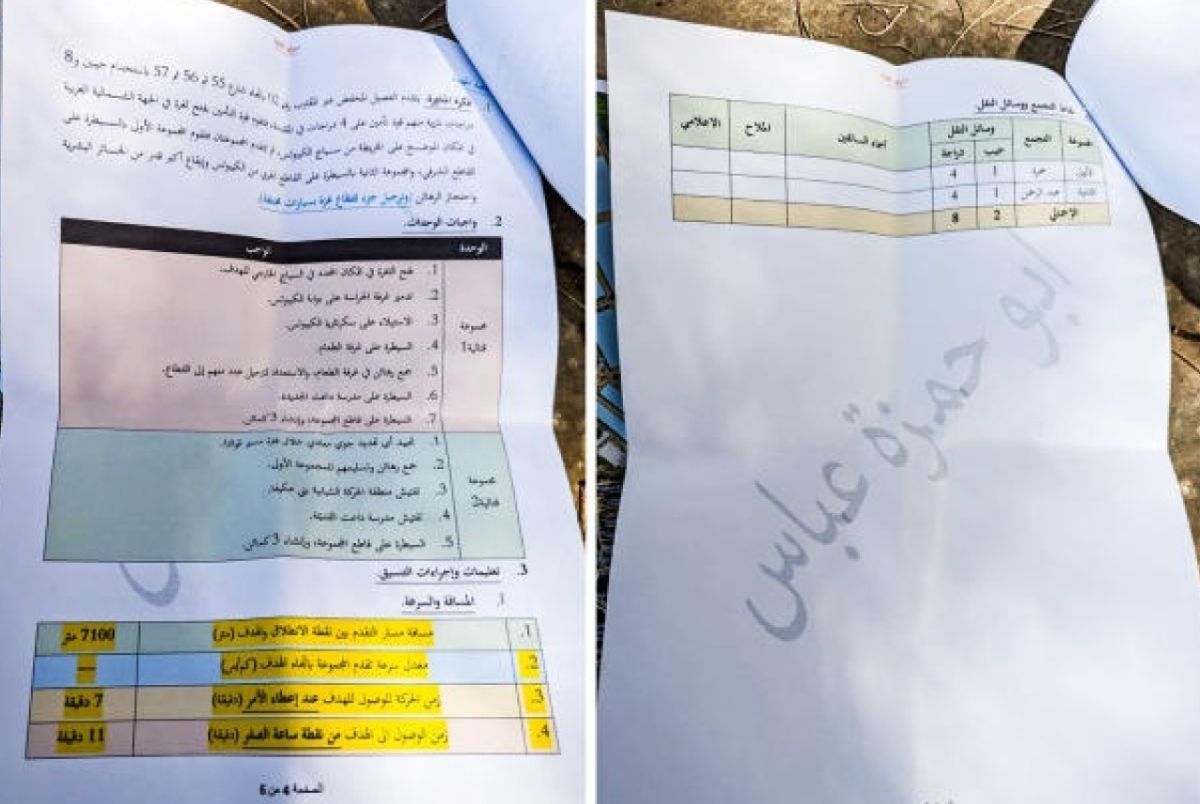 فكرة المناورة: يتقدم الفصيل المخفض عبر المقلوب رقم 12 باتجاه شارع 55 ثم 56 ثم 57 باستخدام جيبين و8
دراجات نارية منهم قوة تأمين على 4 دراجات في المقدمة، فتقوم قوة التأمين بفتح ثغرة في الجهة الشمالية الغربية
في المكان الموضح على الخريطة من سياج الكيبوتس، ثم تتقدم المجموعتان فتقوم المجموعة الأولى بالسيطرة على
القاطع الشرقي، والمجموعة الثانية بالسيطرة على القاطع الغربي من الكيبوتس وإيقاع أكبر قدر من الخسائر البشرية
واحتجاز الرهائن (وترحيل جزء لقطاع غزة بسيارات مختلفة)
2. واجبات الوحدات.
الوحدة الواجب
مجموعة قتالية 1
1. فتح الثغرة في المكان المحدد في السياج الخارجي للهدف.
2. تدمير غرفة الحراسة على بوابة الكيبوتس.
3. الاستيلاء على سكرتاريا الكيبوتس.
4. السيطرة على غرفة الطعام.
5. جمع رهائن في غرفة الطعام، والاستعداد لترحيل عدد منهم إلى القطاع.
6. السيطرة على مدرسة داعت الجديدة.
7. السيطرة على قاطع المجموعة، وإنشاء 3 كمائن.
مجموعة قتالية 2
1. تحييد أي تهديد جوي معادي خلال فترة سير المناورة.
2. جمع رهائن وتسليمهم للمجموعة الأولى.
3. تفتيش منطقة الحركة الشبابية بني عكيفا.
4. تفتيش مدرسة داعت القديمة.
5. السيطرة على قاطع المجموعة، وإنشاء 3 كمائن.
3. تعليمات وإجراءات التنسيق.
أ. المسافة والسرعة.
1. مسافة مسار التقدم بين نقطة الانطلاق والهدف (متر) 7100 متر
2. معدل سرعة تقدم المجموعة باتجاه الهدف (كم/س) ---
3. زمن الحركة للوصول للهدف عند إعطاء الأمر (دقيقة) 7 دقيقة
4. زمن الوصول الى الهدف من نقطة ساعة الصفر (دقيقة) 11 دقيقة
الصفحة 4 من 6
نقاط التجمع ووسائل النقل
مجموعة التجمع وسائل النقل أسماء السائقين الملاح الاعلامي
جيب دراجة
الأولى حمزة 1 4
الثانية عبد الرحمن 1 4
الإجمالي 2 8
ابو حمزة عباس